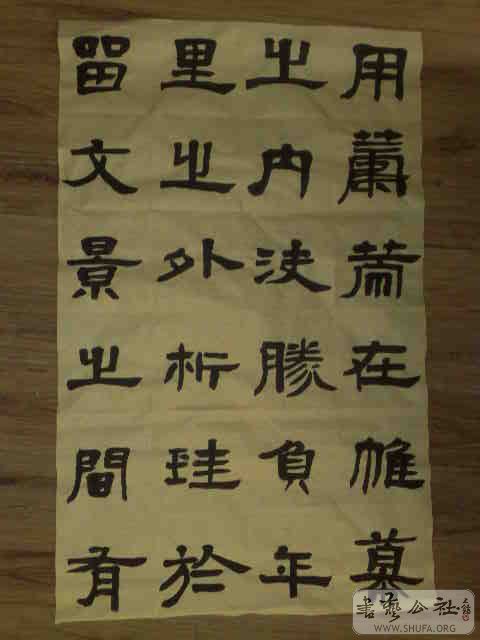 用籌策在帷幕
之內決勝負年
里之外析珪於
留文景之間有
書藝公社
WWW.SHUFA.ORG